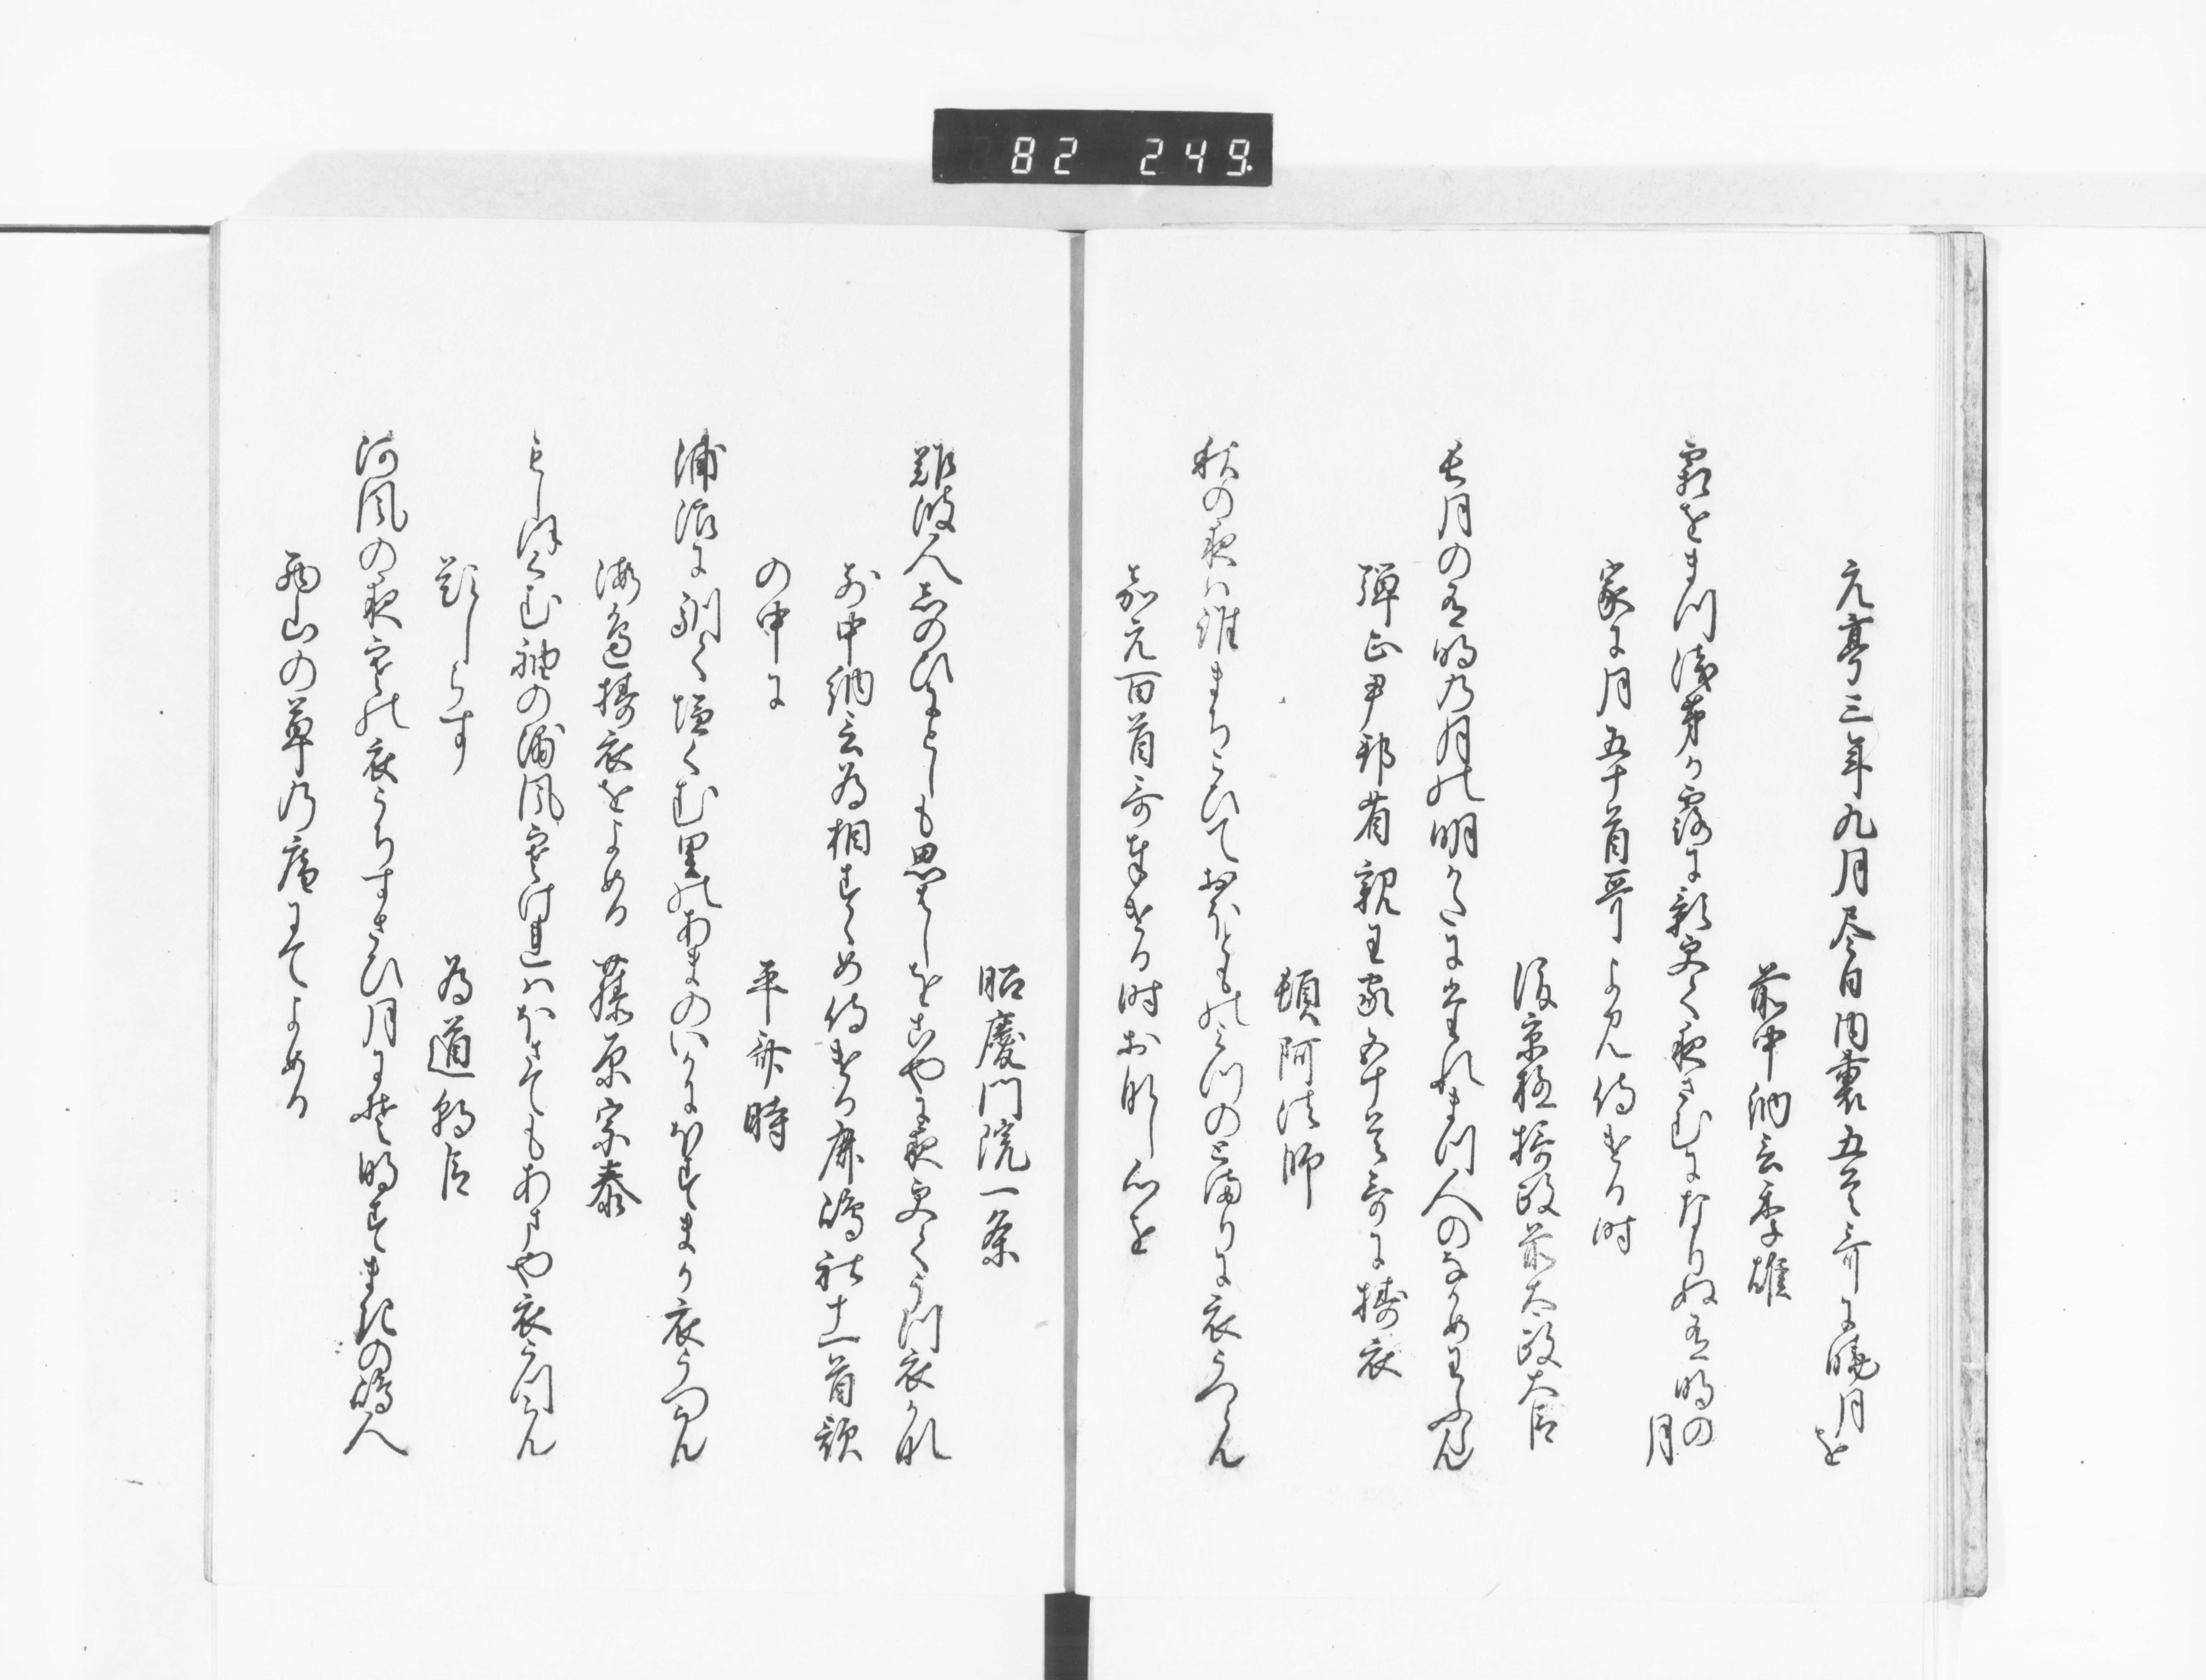 82 249.
元亨三年九月尽日内裏五首哥に暁月を
前中納言季雄
霜をまつ浅茅か露に影更て夜さむになりぬ有明の月
家に月五十首哥よみ侍ける時
後京極摂政前太政大臣
長月の有明の月の明かたに誰まつ人のなかめわふらん
弾正尹邦省親王家五十首哥に擣衣
頓阿法師
秋の夜は誰まちこひておほとものみつのとまりに衣うつらん
嘉元百首哥奉ける時おなし心を
昭慶門院一条
難波人しのひにとしも思はしをこやに夜更てうつ衣かな
前中納言為相すゝめ侍ける鹿嶋社十首歌
の中に
平斉時
浦浜に馴て塩くむ里のあまのいかにほすまか衣うつらん
海辺擣衣をよめる 藤原宗泰
もしほくむ袖の浦風寒けれはほさてもあまや衣うつらん
題しらす
為道朝臣
河風の夜寒の衣うちすさひ月にそ明すまきの嶋人
西山の草の庵にてよめる